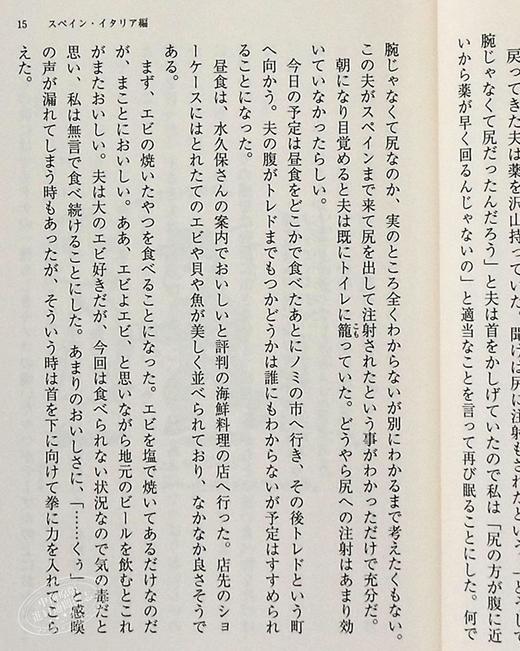 15　スペイン・イタリア編
戻ってきた夫は薬を沢山持っていた。聞けば尻に注射もされたという。「どうして
腕じゃなくて尻だったんだろう」と夫は首をかしげていたので私は「尻の方が腹に近
いから薬が早く回るんじゃないの」と適当なことを言って再び眠ることにした。何で
腕じゃなくて尻なのか、実のところ全くわからないが別にわかるまで考えたくもない。
この夫がスペインまで来て尻を出して注射されたという事がわかっただけで充分だ。
朝になり目覚めると夫は既にトイレに籠っていた。どうやら尻への注射はあまり効
いていなかったらしい。
今日の予定は昼食をどこかで食べたあとにノミの市へ行き、その後トレドという町
へ向かう。夫の腹がトレドまでもつかどうかは誰にもわからないが予定はすすめられ
ることになった。
昼食は、水久保さんの案内でおいしいと評判の海鮮料理の店へ行った。店先のショ
ーケースにはとれたてのエビや貝や魚が美しく並べられており、なかなか良さそうで
ある。
まず、エビの焼いたやつを食べることになった。エビを塩で焼いてあるだけなのだ
が、まことにおいしい。ああ、エビよエビ、と思いながら地元のビールを飲むとこれ
がまたおいしい。夫は大のエビ好きだが、今回は食べられない状況なので気の毒だと
思い、私は無言で食べ続けることにした。あまりのおいしさに、「……くぅ」と感嘆
の声が漏れてしまう時もあったが、そういう時は首を下に向けて拳に力を入れてこら
えた。